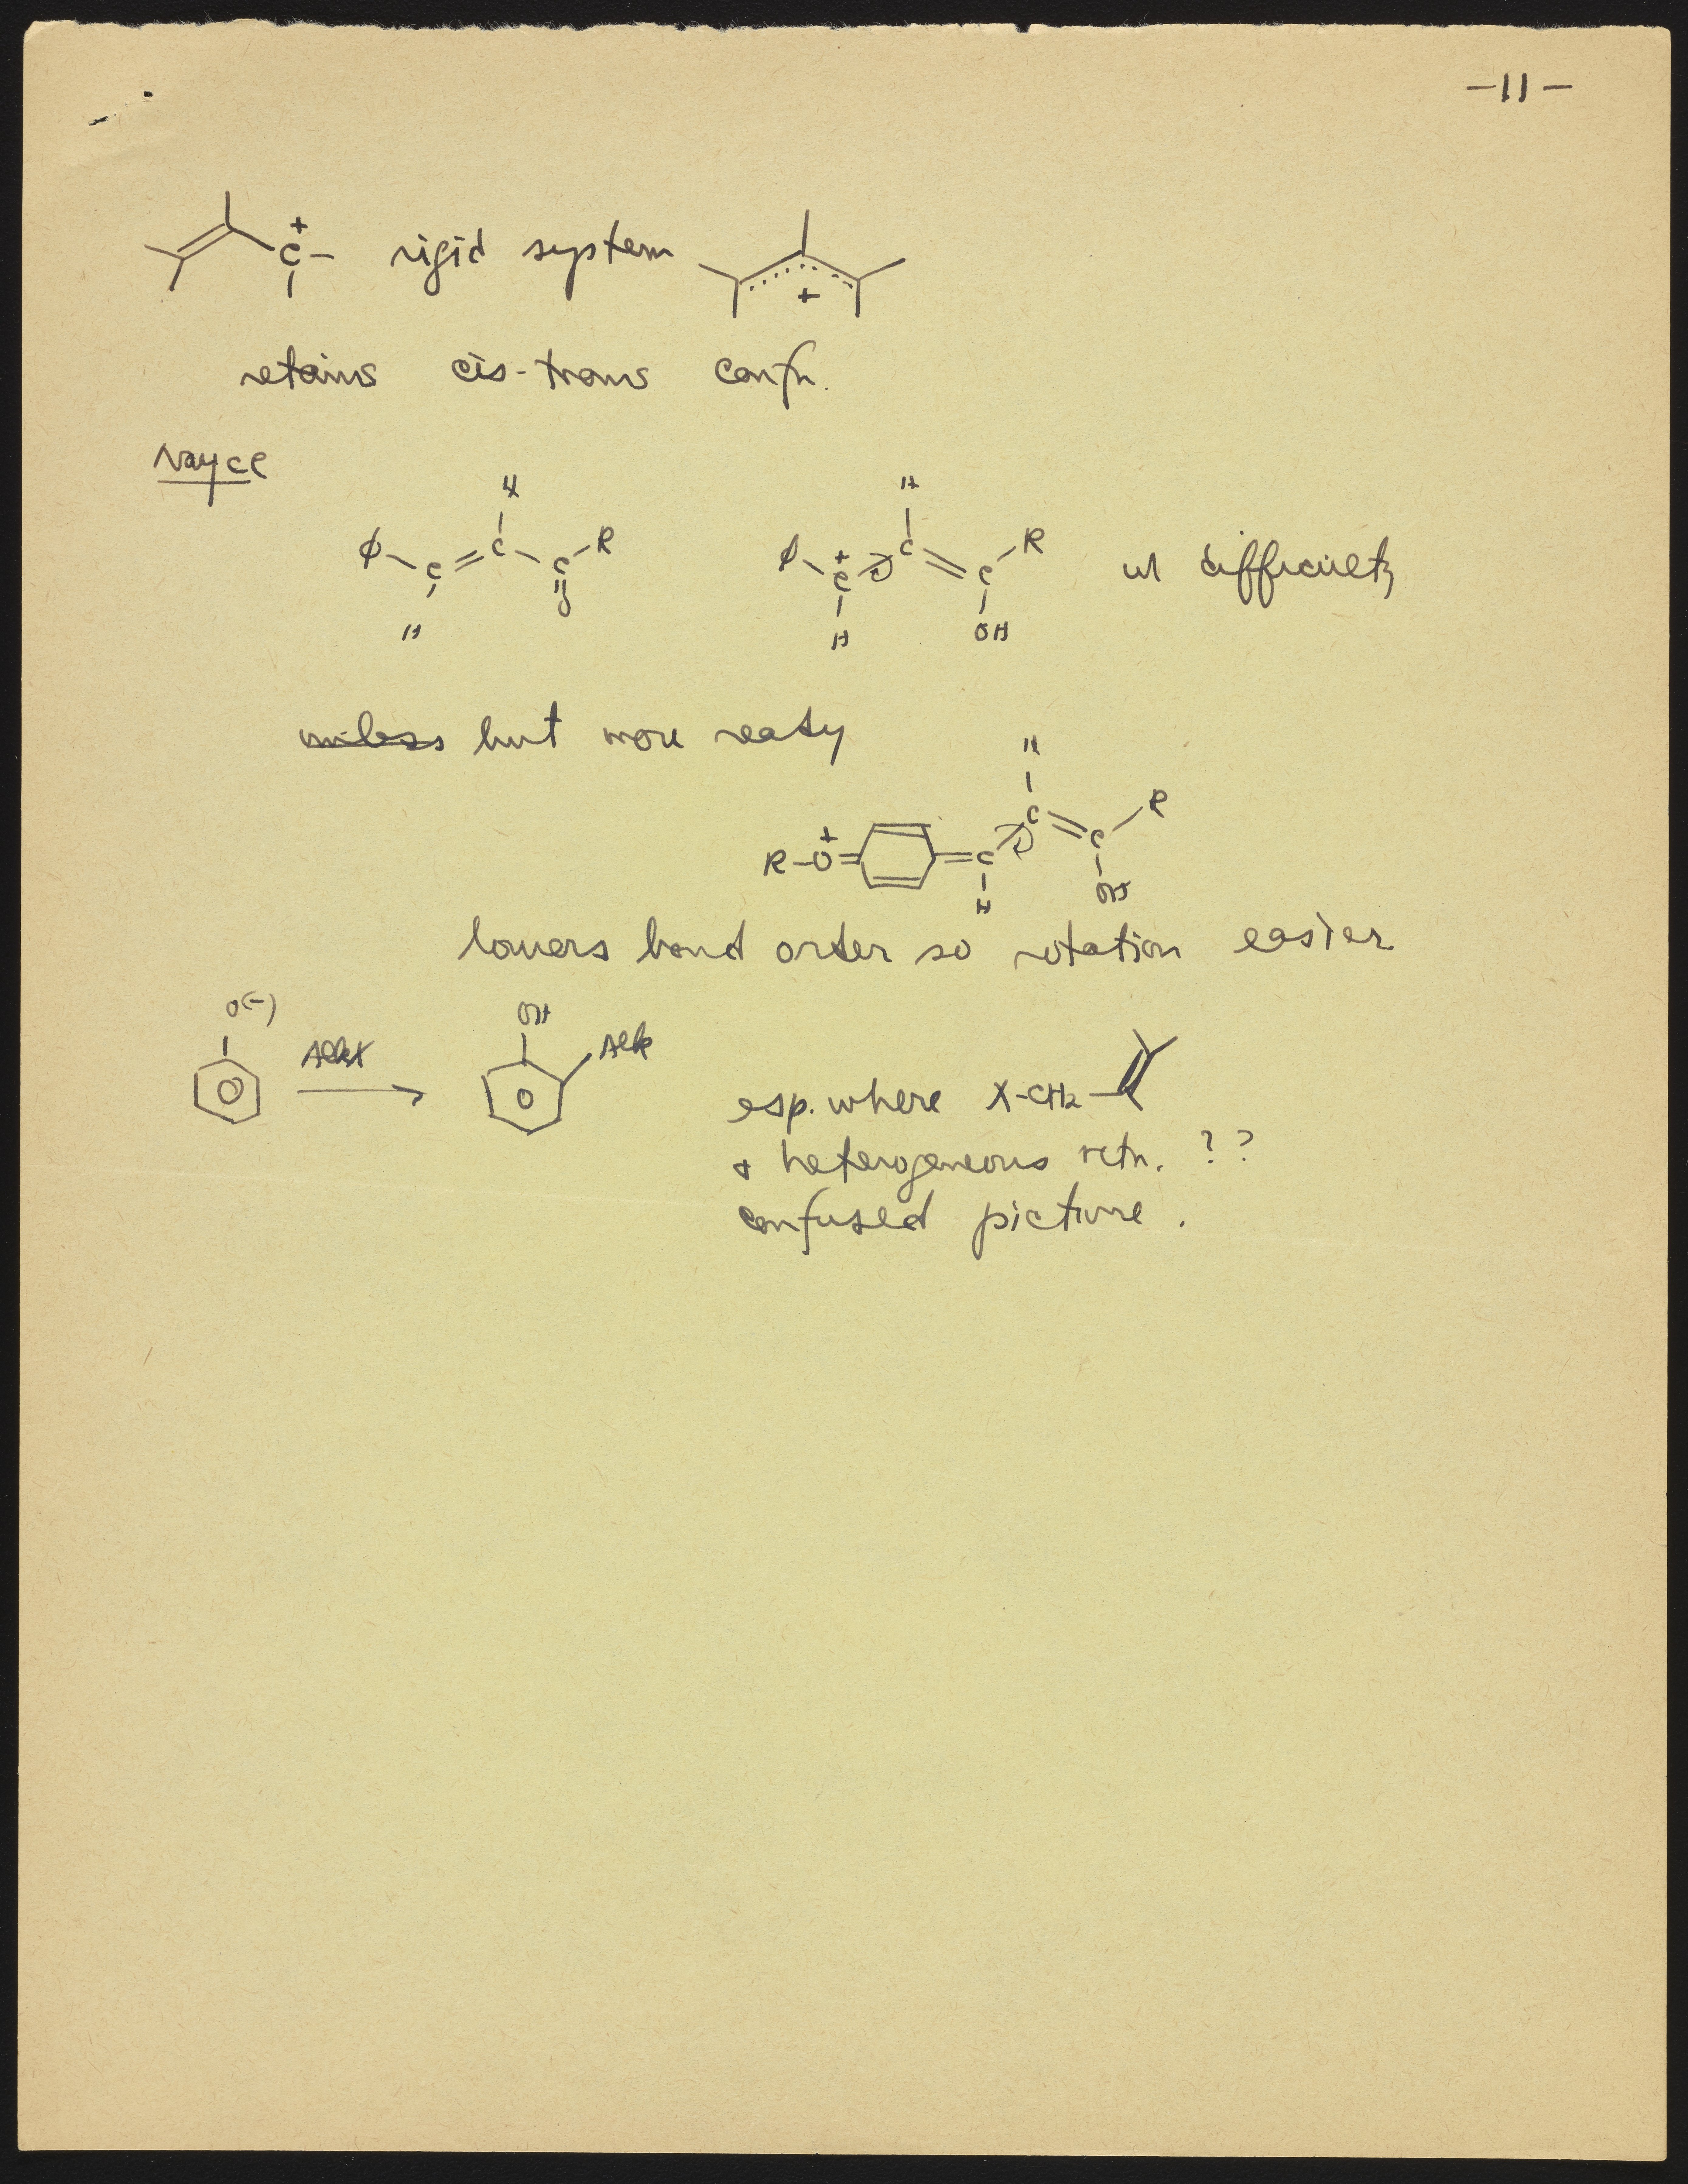 -11-
C+ rigid system +
retains cis-trans confn.
Noyce
H H
φ-C=C-C-R φ-C+-C=C-R w difficulty
H O H OH
unless but more ready
H
R-O+= =C-C=C-R
H OH
lowers bond order so rotation easier
O(-) AlkX OH Alk
esp. where X-CH2
+ heterogeneous rctn. ??
confused picture.